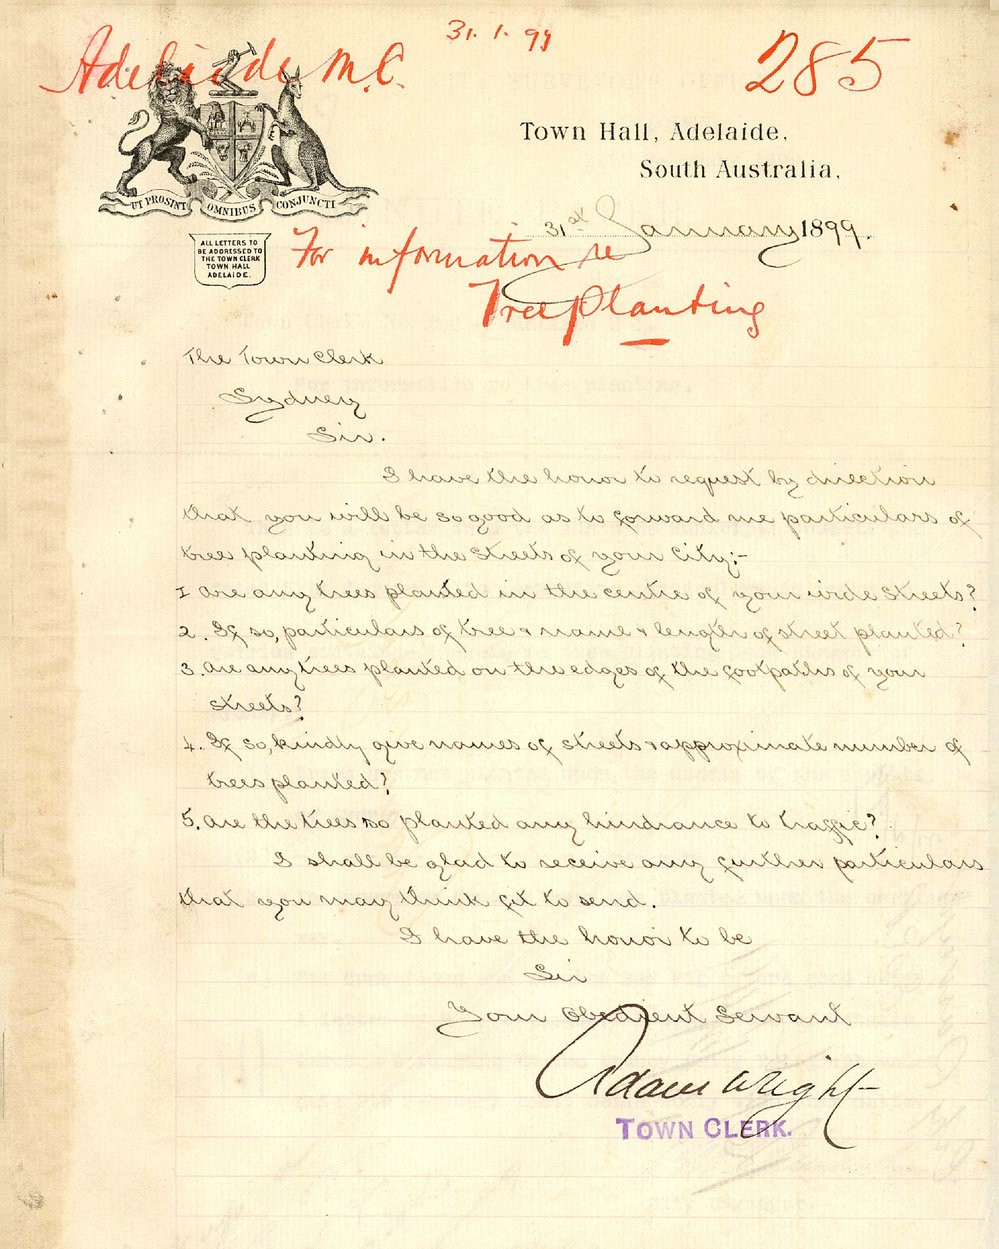 31.1.99
Adelaide M.C.
285
Town Hall, Adelaide,
South Australia,
UT PROSINT OMNIBUS CONJUNCTI
31st January 1899.
ALL LETTERS TO
BE ADDRESSED TO
THE TOWN CLERK
TOWN HALL
ADELAIDE.
For information re
Tree Planting
The Town Clerk
Sydney
Sir.
I have the honor to request by direction
that you will be so good as to forward me particulars of
tree planting in the streets of your City:-
1 Are any trees planted in the centre of your wide streets?
2. If so, particulars of tree & name & length of street planted?
3. Are any trees planted on the edges of the footpaths of your
streets?
4. If so, kindly give names of streets & approximate number of
trees planted?
5. Are the trees so planted any hindrance to traffic?
I shall be glad to receive any further particulars
that you may think fit to send.
I have the honor to be
Sir
Your Obedient Servant
Adam Wright
TOWN CLERK.